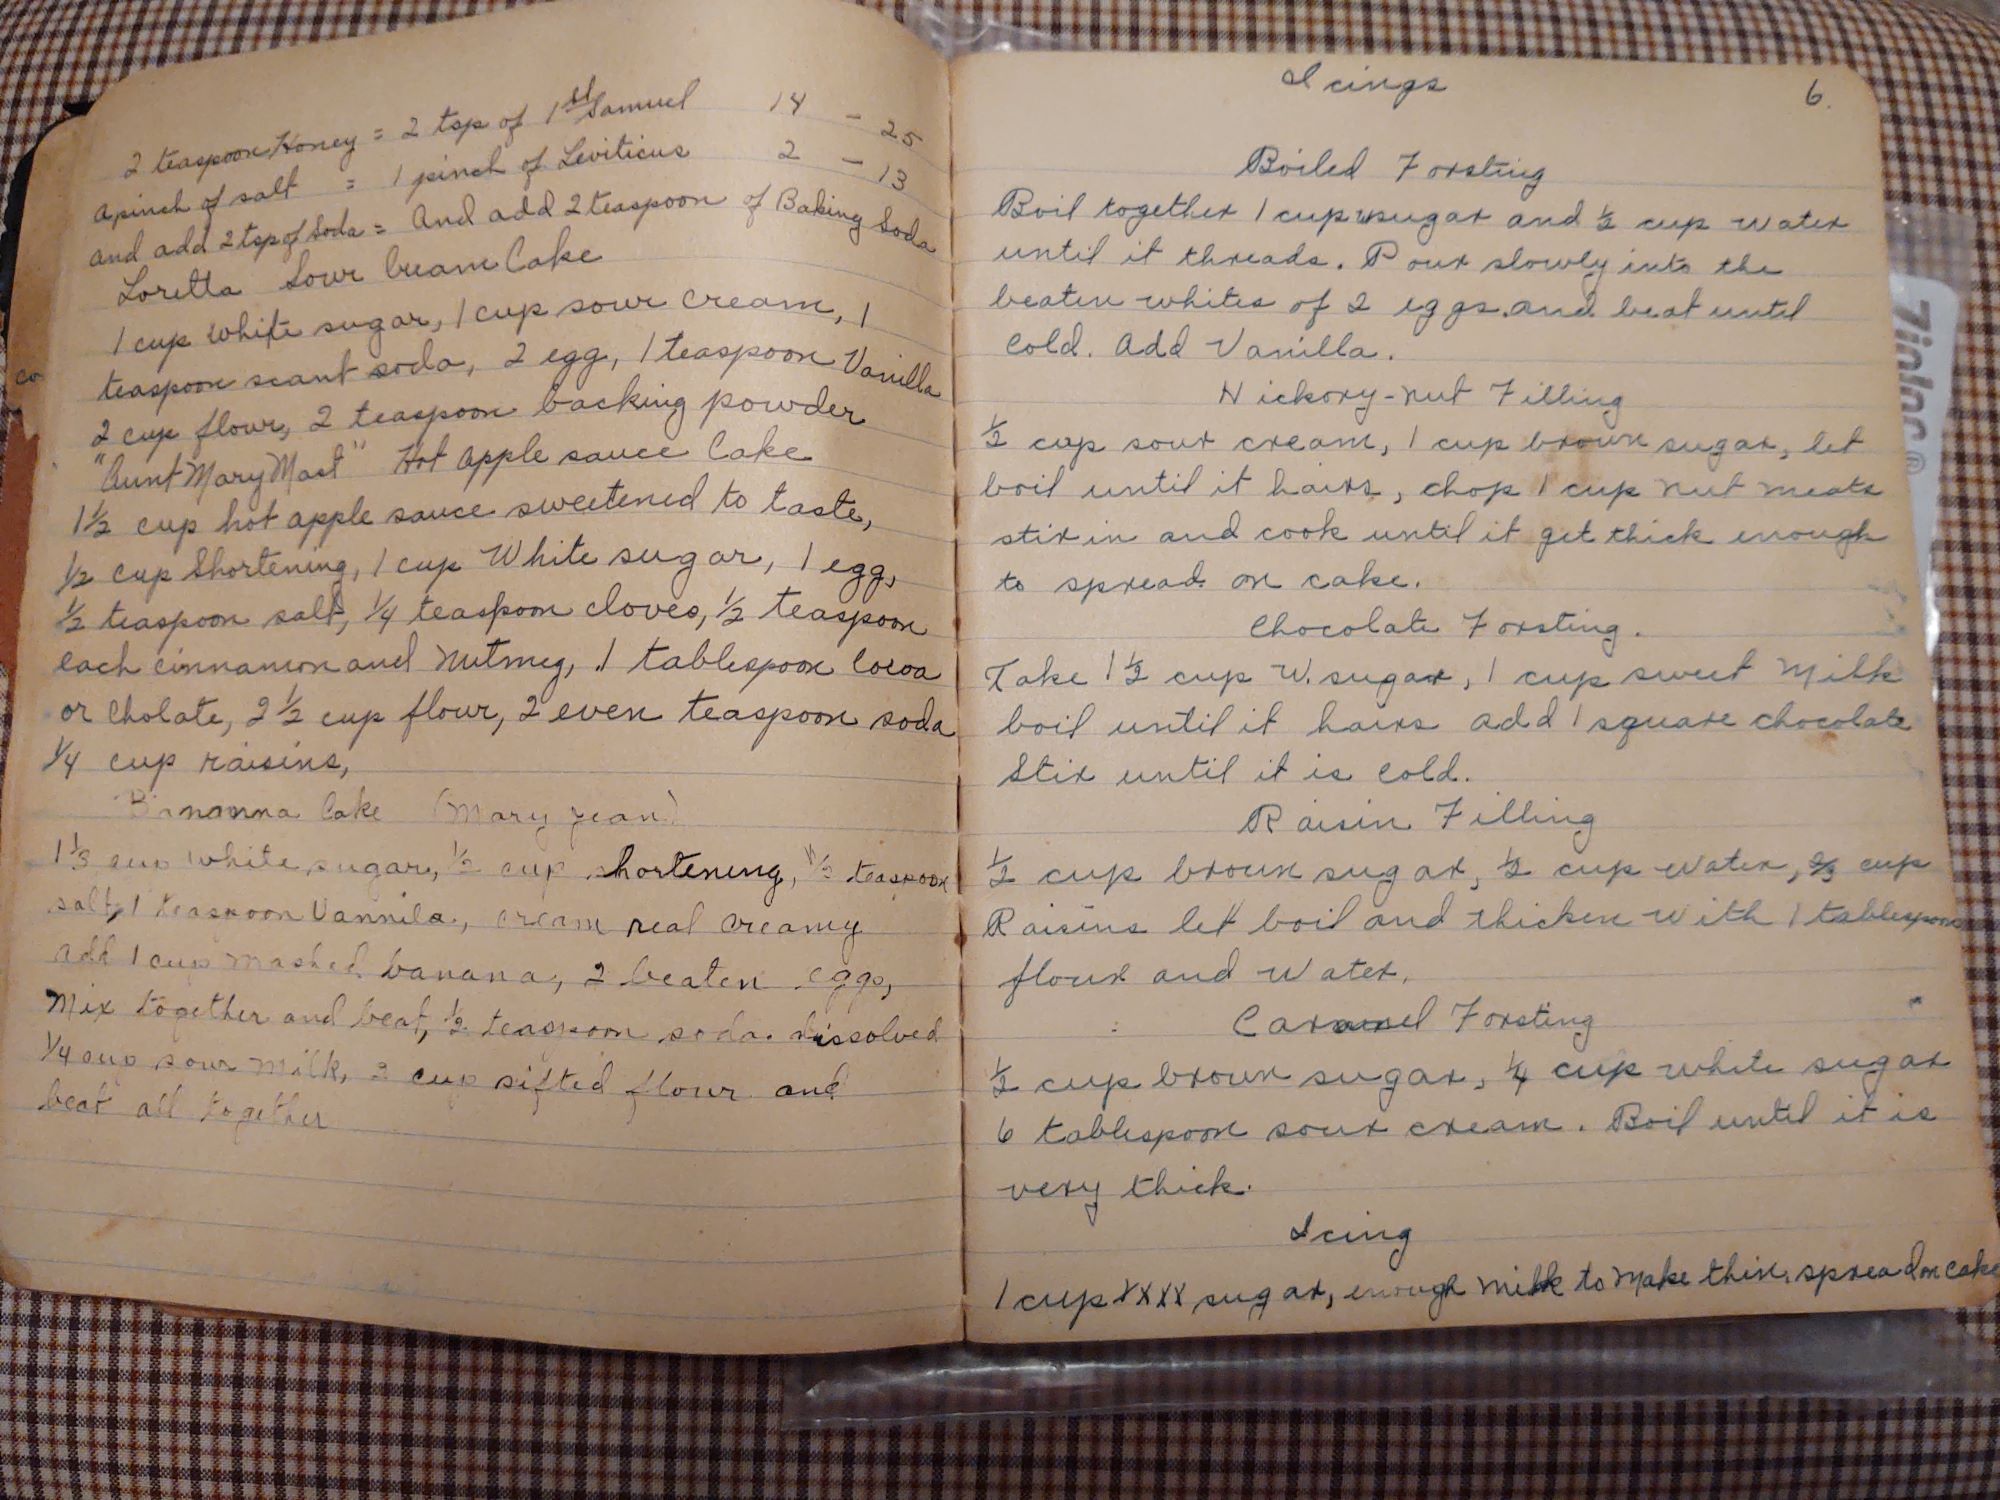 2 teaspoon Honey = 2 tsp of 1st Samuel 14 - 25
a pinch of salt = 1 pinch of Leviticus 2 - 13
and add 2 tsp of soda = And add 2 teaspoon of Baking Soda
Loretta Sour Cream Cake
1 cup white sugar, 1 cup sour cream, 1
teaspoon scant soda, 2 egg, 1 teaspoon Vanilla
2 cup flour, 2 teaspoon backing powder
"Aunt Mary Mast" Hot Apple sauce Cake
1 1/2 cup hot apple sauce sweetened to taste,
1/2 cup Shortening, 1 cup White sugar, 1 egg,
1/2 teaspoon salt, 1/4 teaspoon cloves, 1/2 teaspoon
each cinnamon and Nutmeg, 1 tablespoon Cocoa
or Cholate, 2 1/2 cup flour, 2 even teaspoon soda
1/4 cup raisins,
Bananna Cake (Mary Jean)
1 1/3 cup white sugar, 1/2 cup shortening, 1/2 teaspoon
salt, 1 teaspoon Vannila, cream real creamy
add 1 cup mashed banana, 2 beaten eggs,
Mix together and beat, 1/2 teaspoon soda dissolved
1/4 cup sour milk, 2 cup sifted flour and
beat all together
co
Icings 6.
Boiled Forsting
Boil together 1 cup w sugar and 1/2 cup water
until it threads. Pour slowly into the
beaten whites of 2 eggs and beat until
Cold. Add Vanilla.
Hickory-nut Filling
1/2 cup sour cream, 1 cup brown sugar, let
boil until it hairs, chop 1 cup nut meats
stir in and cook until it get thick enough
to spread on cake.
Chocolate Forsting.
Take 1 1/2 cup W. sugar, 1 cup sweet milk
boil until it hairs add 1 square chocolate
Stir until it is Cold.
Raisin Filling
1/2 cup brown sugar, 1/2 cup water, 2/3 cup
Raisins let boil and thicken with 1 tablespoon
flour and water.
Caramel Forsting
1/2 cup brown sugar, 1/4 cup white sugar
6 tablespoon sour cream. Boil until it is
very thick.
Icing
1 cup XXXX sugar, enough milk to make thin, spread on cake
Ziploc®